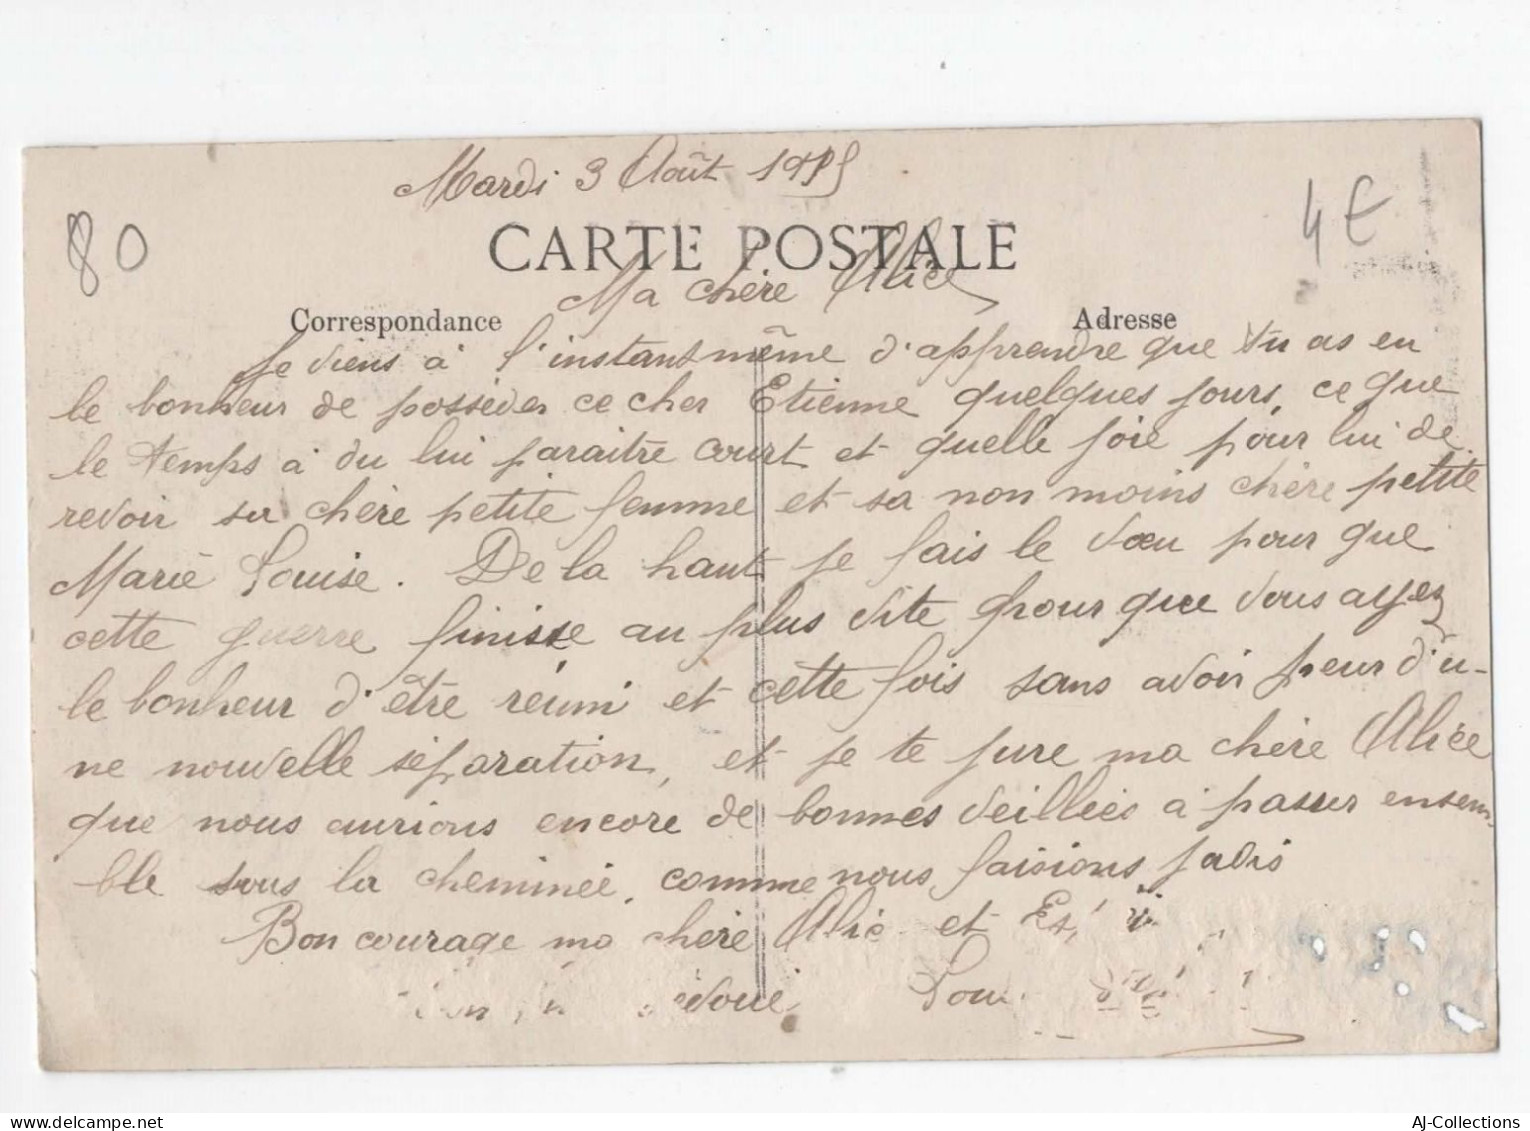 Mardi 3 Août 1915
80
4€
CARTE POSTALE
Ma chère Alice
Correspondance
Adresse
Je viens à l'instant même d'apprendre que tu as eu
le bonheur de posséder ce cher Etienne quelques jours, ce que
le temps à du lui paraitre court et quelle joie pour lui de
revoir sa chère petite femme et sa non moins chère petite
Marie Louise. De la haut je fais le vœu pour que
cette guerre finisse au plus vite pour que vous ayez
le bonheur d'être réuni et cette fois sans avoir peur d'u-
ne nouvelle séparation, et je te jure ma chère Alice
que nous aurions encore de bonnes veillées à passer ensem-
ble sous la cheminée, comme nous faisions jadis
Bon courage ma chère Alice et
AJ-Collections